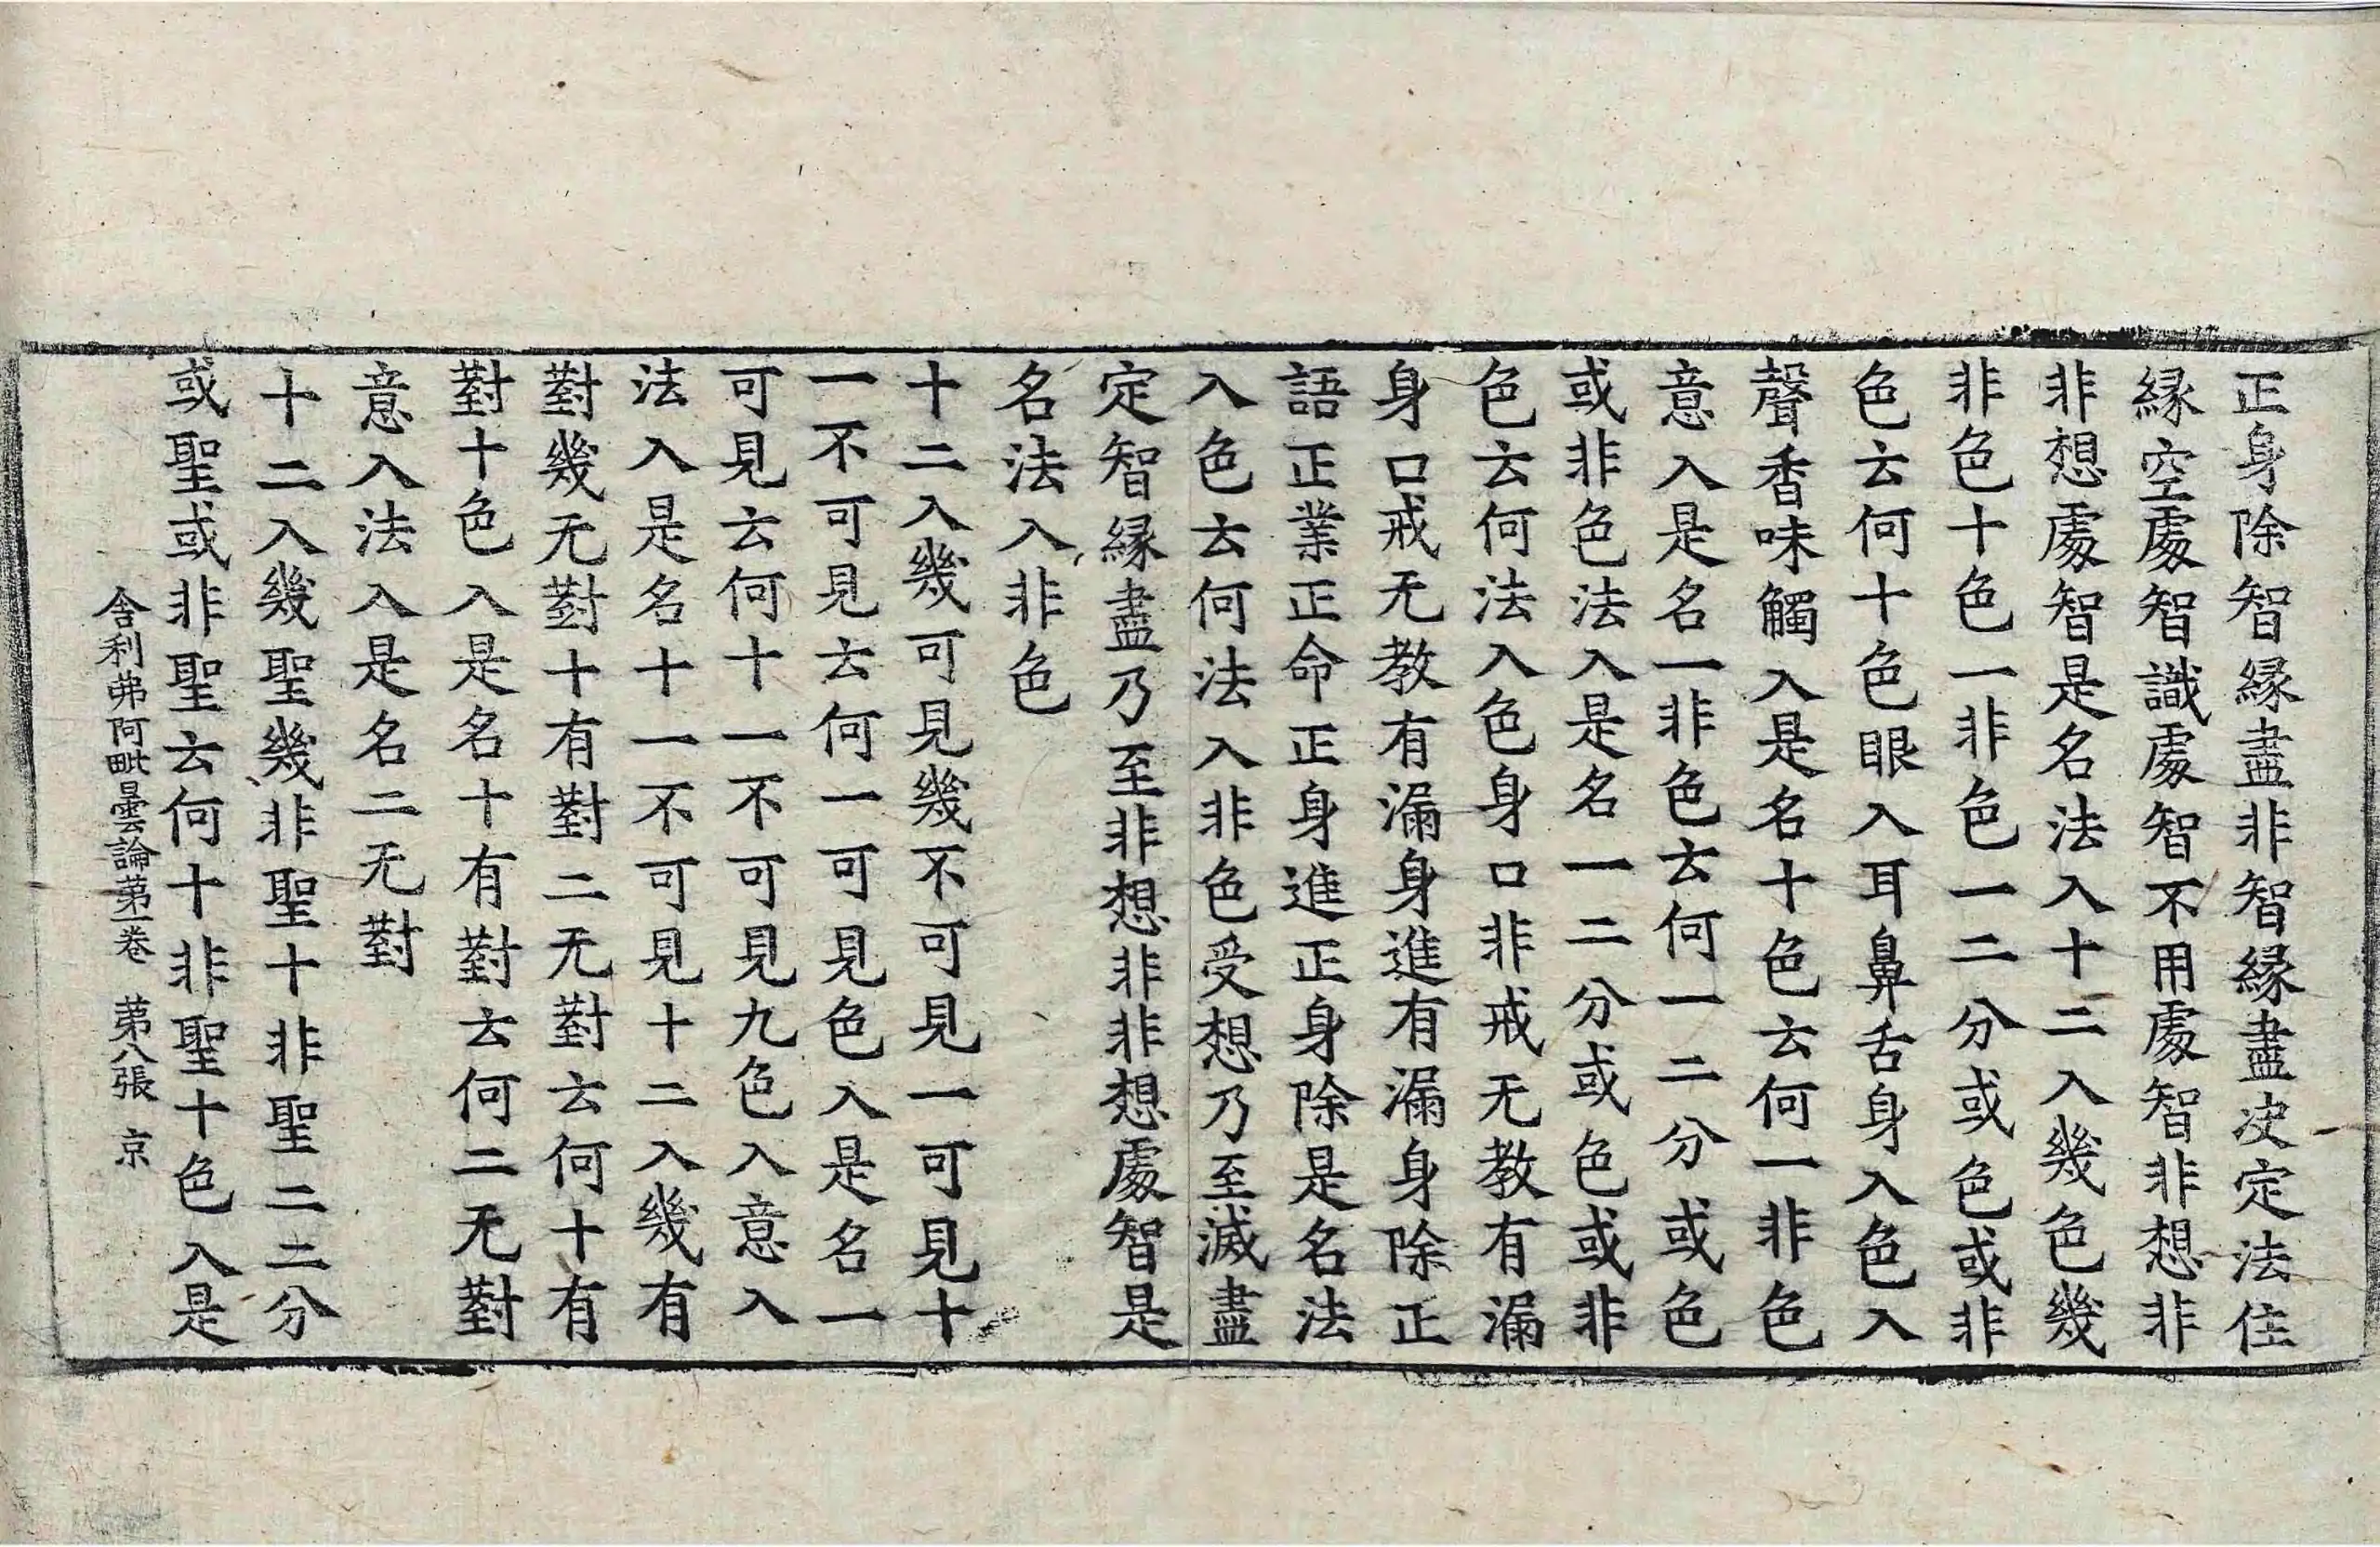 正身除智緣盡非智緣盡決定法住
緣空處智識處智不用處智非想非
非想處智是名法入十二入幾色幾
非色十色一非色一二分或色或非
色云何十色眼入耳鼻舌身入色入
聲香味觸入是名十色云何一非色
意入是名一非色云何一二分或色
或非色法入是名一二分或色或非
色云何法入色身口非戒无教有漏
身口戒无教有漏身進有漏身除正
語正業正命正身進正身除是名法
入色云何法入非色受想乃至滅盡
定智緣盡乃至非想非非想處智是
名法入非色
十二入幾可見幾不可見一可見十
一不可見云何一可見色入是名一
可見云何十一不可見九色入意入
法入是名十一不可見十二入幾有
對幾无對十有對二无對云何十有
對十色入是名十有對云何二无對
意入法入是名二无對
十二入幾聖幾非聖十非聖二二分
或聖或非聖云何十非聖十色入是
舍利弗阿毗曇論第一卷 第八張 京